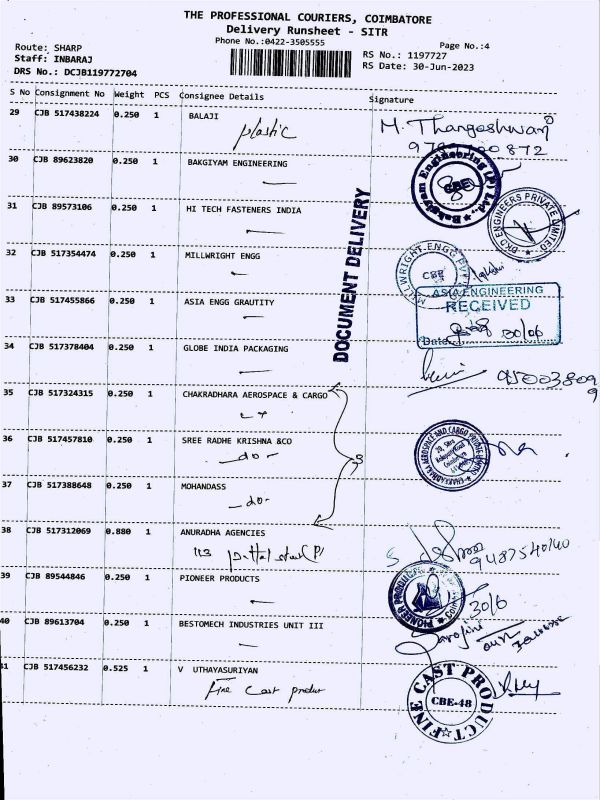 THE PROFESSIONAL COURIERS, COIMBATORE
Delivery Runsheet - SITR
Phone No.:0422-3505555
Page No.:4
Route: SHARP
Staff: INBARAJ
DRS No.: DCJB119772704
RS No.: 1197727
RS Date: 30-Jun-2023
S No Consignment No Weight PCS Consignee Details Signature
29 CJB 517438224 0.250 1 BALAJI
plastic
M. Thangeshwari
30 CJB 89623820 0.250 1 BAKGIYAM ENGINEERING
Bakgiyam Engineering (P) Ltd.
CBE
31 CJB 89573106 0.250 1 HI TECH FASTENERS INDIA
ENGINEERS PRIVATE LIMITED
DOCUMENT DELIVERY
32 CJB 517354474 0.250 1 MILLWRIGHT ENGG
MILLWRIGHT ENGG
CBE
33 CJB 517455866 0.250 1 ASIA ENGG GRAUTITY
ASIA ENGINEERING
RECEIVED
Date 30/06
34 CJB 517378404 0.250 1 GLOBE INDIA PACKAGING
35 CJB 517324315 0.250 1 CHAKRADHARA AEROSPACE & CARGO
CHAKRADHARA AEROSPACE AND CARGO PRIVATE LIMITED
36 CJB 517457810 0.250 1 SREE RADHE KRISHNA &CO
-do-
37 CJB 517388648 0.250 1 MOHANDASS
-do-
38 CJB 517312069 0.880 1 ANURADHA AGENCIES
9487540140
39 CJB 89544846 0.250 1 PIONEER PRODUCTS
PIONEER PRODUCTS
30/6
40 CJB 89613704 0.250 1 BESTOMECH INDUSTRIES UNIT III
Sarojini
41 CJB 517456232 0.525 1 V UTHAYASURIYAN
Fine Cast product
FINE CAST PRODUCT
CBE-48